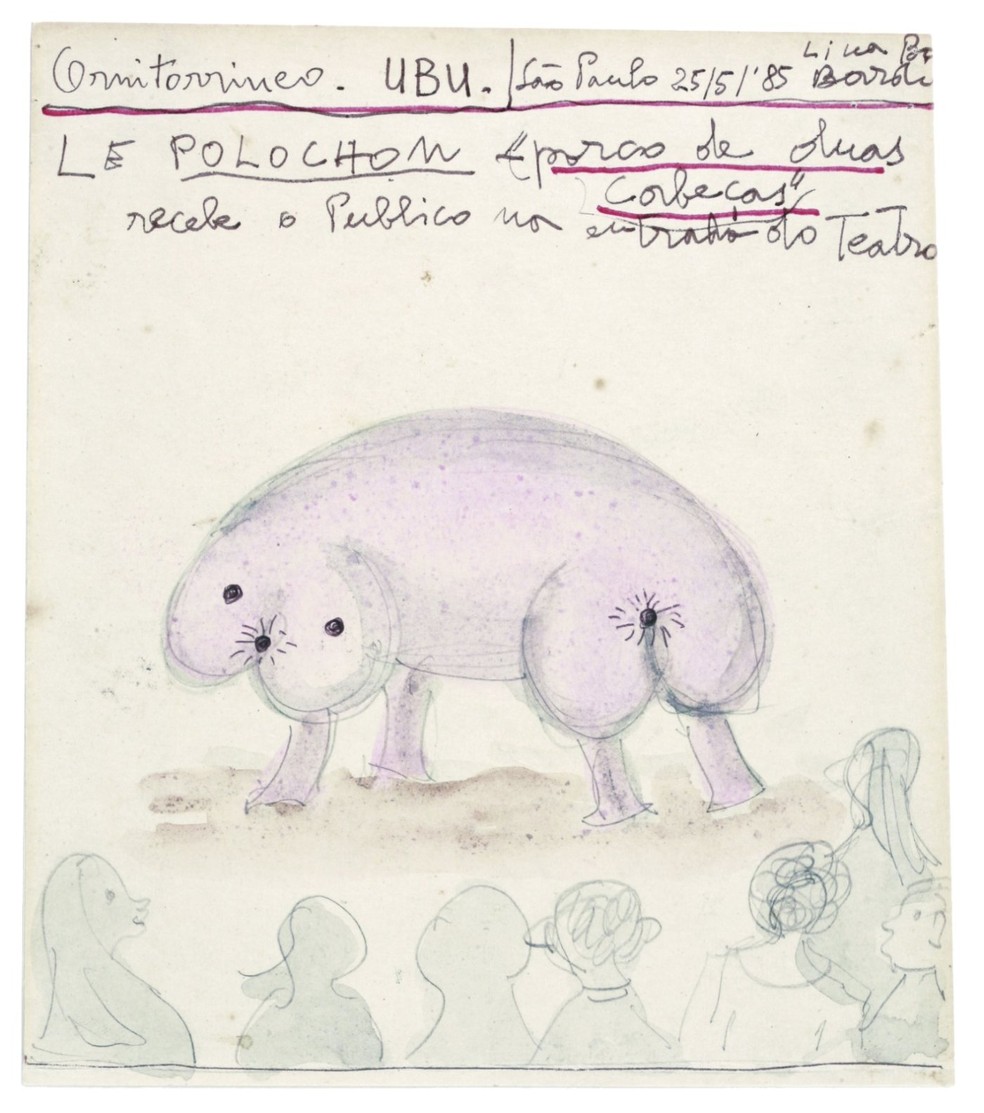 Lina Bo
Ornitorrinco. UBU. | São Paulo 25/5/'85 Bardi
LE POLOCHON "porco de duas
cabeças"
recebe o Publico na entrada do Teatro